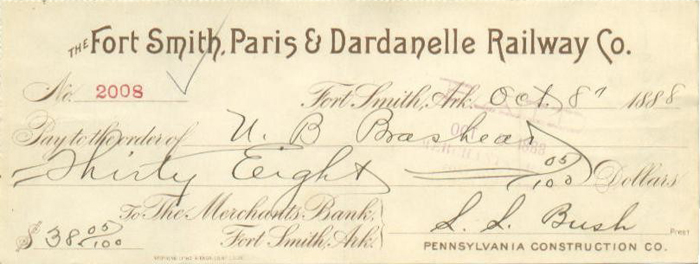 THE Fort Smith, Paris & Dardanelle Railway Co.
No. 2008
Fort Smith, Ark. Oct. 8" 1888
Pay to the order of U. B Brashear
Thirty Eight 05/100 Dollars
To The Merchants Bank.
$ 38 05/100 Fort Smith, Ark.
S. S. Bush Prest
PENNSYLVANIA CONSTRUCTION CO.